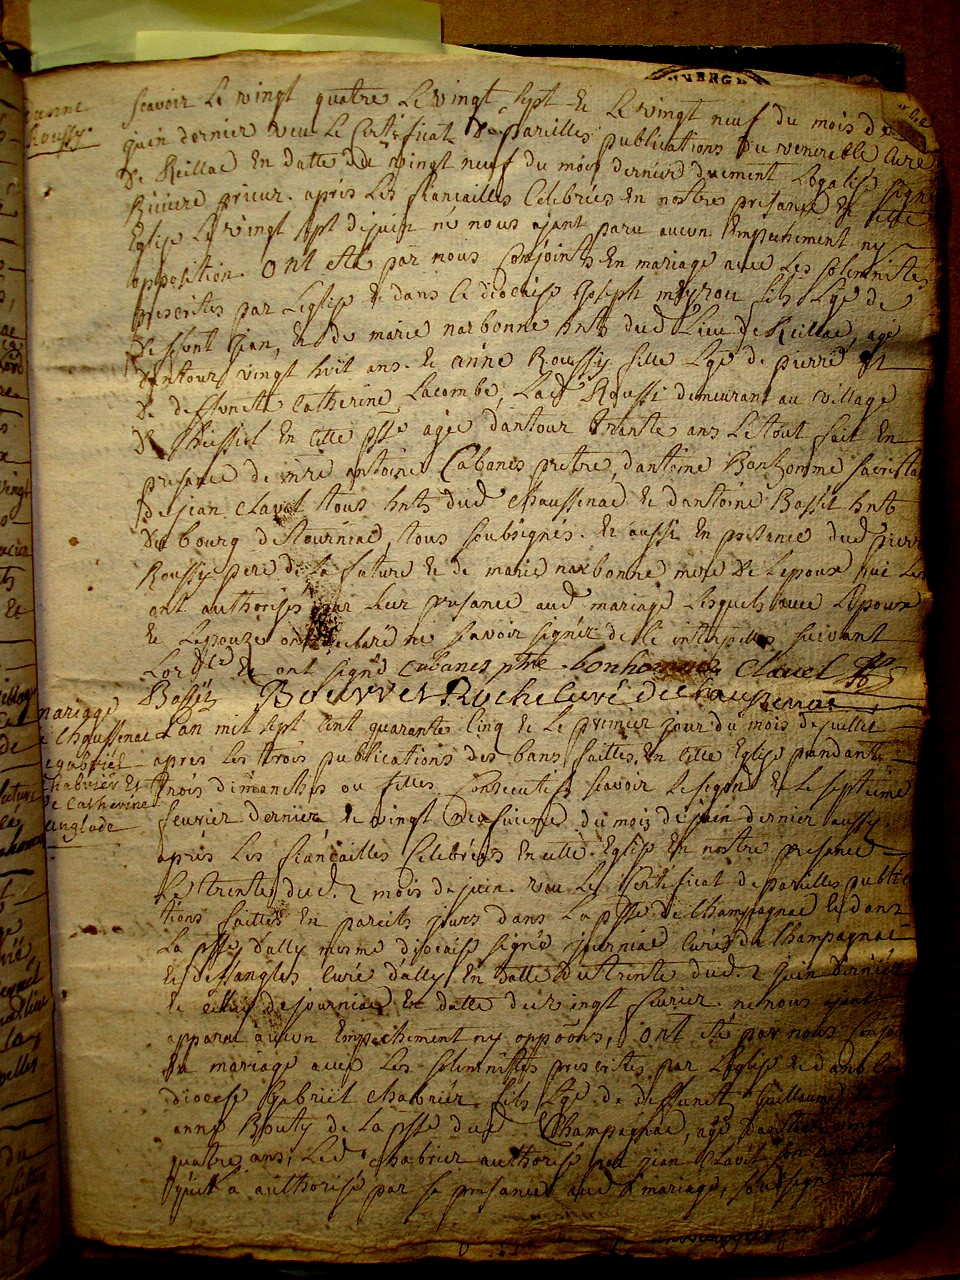 anne
Roussy
scavoir le vingt quatre le vingt sept et le vingt neuf du mois de
juin dernier veu le certificat de pareilles publications du venerable curé
de Reillac en datte du vingt neuf du mois dernier duement legalisé signé
Riviere prieur. après les fiancailles celebrées en nostre presance en cette
Eglise le vingt sept de juin ne nous ajant paru aucun Empechement ny
opposition. ont eté par nous conjoints en mariage avec les solemnités
prescrites par leglise et dans ce diocèse joseph meyrou fils lge de
deffunt jean, et de marie narbonne hnts dud. lieu de Reillac, agé
dentour vingt huit ans. et anne Roussy fille lge de pierre et
de deffuncte catherine Lacombe, Lad. Roussi demeurant au village
de en cette psse agée dantour trente ans le tout fait en
presance de mre antoine Cabanes pretre, dantoine Bonhomme sacristain
de jean clavel tous hnts dud chaussenac et dantoine Basset hnt
du bourg de tourniac, tous soubsignés. et aussi en presance dud pierre
Roussy pere de la future et de marie narbonne mere de lepoux qui les
ont authorisés par leur presance aud mariage lesquels avec lepoux
et lepouze ont declaré ne scavoir signer de ce interpellés suivant
Lord. et ont signé cabanes ptre bonhomme Clavel
Basset Bouvver Rochecuré de chaussenac
mariage
chaussenac
gabriel
chabrier et
de Catherine
anglade
Lan mil sept cent quarente cinq et le premier jour du mois de juillet
après les trois publications des bans faittes en cette Eglise pendant
trois dimanches ou festes consecutifs scavoir le segond et le septieme
fevrier dernier et vingt neufvieme du mois de juin dernier aussy
après les fiancailles celebrées en cette Eglise en nostre presance
le trente dud. mois de juin. veu le certificat de pareilles publica
tions faittes en pareils jours dans la psse de Champagnac et dans
la psse dally mesme diocèse signé journiac curé de Champagnac
et desangles curé dally en datte du trente dud. juin dernier
et celuy de journiac en datte du vingt fevrier. ne nous ajant
apparu aucun Empechement ny oppõons, ont eté par nous conjoints
en mariage avec les solemnités prescrites par leglise et dans ce
diocese gabriel chabrier fils lge de deffunct guillaume
anne Bouty de la psse dud Champagnac, agé
quatre ans, led chabrier authorisé par jean clavel
qui la authorisé par sa presance aud mariage, soubsigné